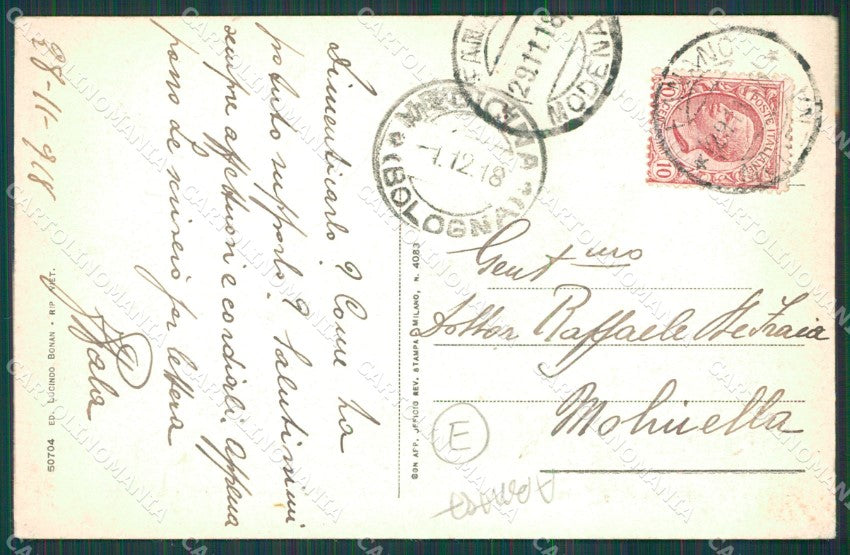 28-11-918
Dimenticarlo? Come ha
potuto supporlo? Salutissimi
sempre affettuosi e cordiali. Appena
posso le scriverò per lettera
Gent.mo
Dottor Raffaele De Fraia
Molinella
E
MODENA
29.11.18
MODENA
MOLINELLA
1.12.18
(BOLOGNA)
POSTE ITALIANE
10
10
50704 ED. LUCINDO BONAN - RIP. VIET.
CON APP. UFFICIO REV. STAMPA MILANO, N. 4083
CARTOLINOMANIA